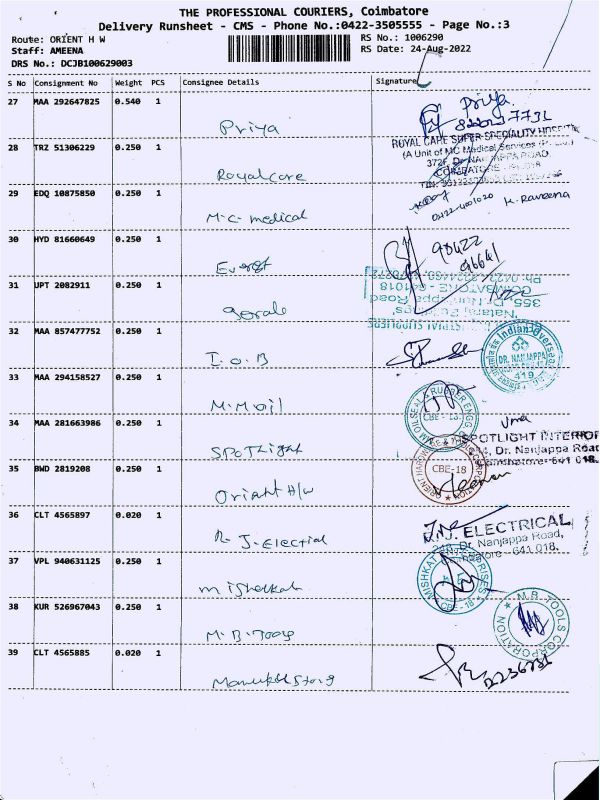 THE PROFESSIONAL COURIERS, Coimbatore
Delivery Runsheet - CMS - Phone No.:0422-3505555 - Page No.:3
Route: ORIENT H W
RS No.: 1006290
Staff: AMEENA
RS Date: 24-Aug-2022
DRS No.: DCJB100629003
S No Consignment No Weight PCS Consignee Details Signature
27 MAA 292647825 0.540 1
Priya
Priya
28 TRZ 51306229 0.250 1
Royalcare
ROYAL CARE SUPER SPECIALITY HOSPITAL
(A Unit of MC Medical Services
29 EDQ 10875850 0.250 1
M.C. medical
0422-4001020 K. Raveena
30 HYD 81660649 0.250 1
Everest
98422
96641
31 UPT 2082911 0.250 1
COIMBATORE - 641018
355, Dr. Nanjappa Road
32 MAA 857477752 0.250 1
I.O.B
Indian Overseas
DR. NANJAPPA
419
33 MAA 294158527 0.250 1
M.M oil
OIL SEAL & RUBBER ENGG
CBE - 18
34 MAA 281663986 0.250 1
Spotlight
Uma
SPOTLIGHT INTERIOR
Dr. Nanjappa Road
Coimbatore - 641 018.
35 BWD 2819208 0.250 1
Orient H/w
CBE-18
36 CLT 4565897 0.020 1
R. J. Electrial
R.J. ELECTRICAL
Dr. Nanjappa Road,
Coimbatore - 641 018.
37 VPL 940631125 0.250 1
MISHKAT ENTERPRISES
CBE-18
38 KUR 526967043 0.250 1
M.B. Tools
M.B. TOOLS CORPORATION
39 CLT 4565885 0.020 1